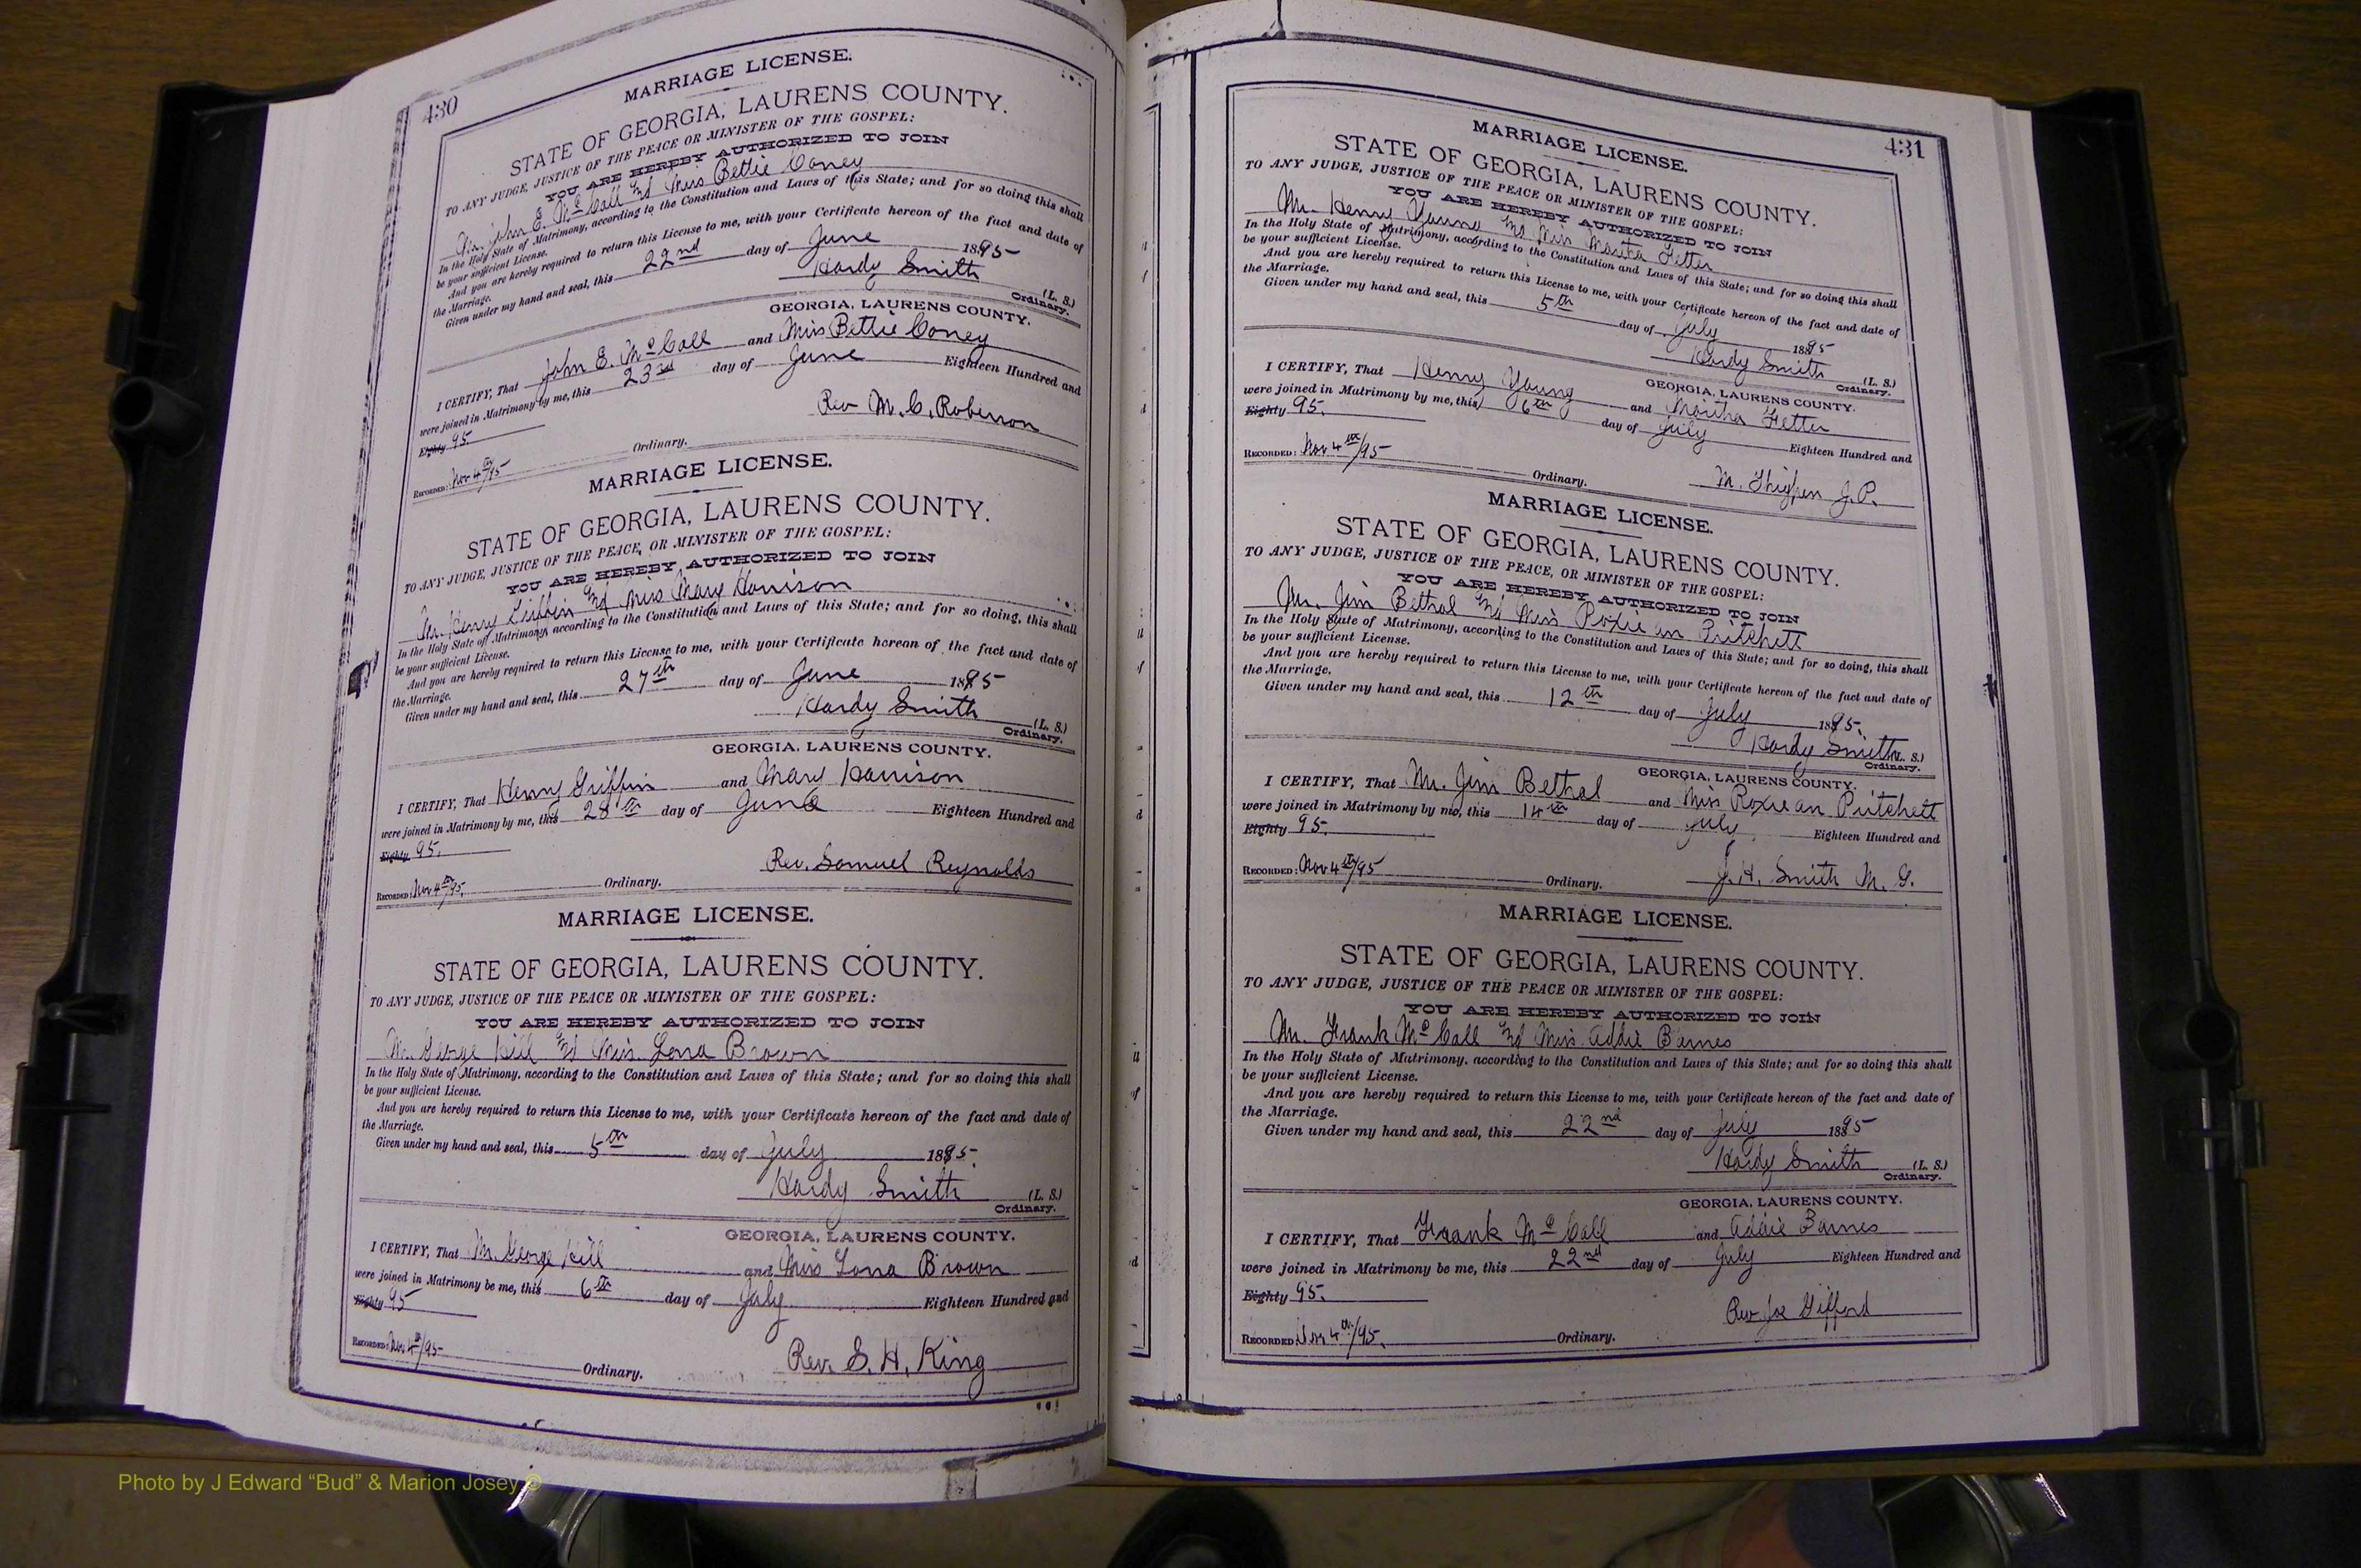 430
MARRIAGE LICENSE.
STATE OF GEORGIA, LAURENS COUNTY.
TO ANY JUDGE, JUSTICE OF THE PEACE OR MINISTER OF THE GOSPEL:
YOU ARE HEREBY AUTHORIZED TO JOIN
Mr. John E. McCall and Miss Bettie Coney
In the Holy State of Matrimony, according to the Constitution and Laws of this State; and for so doing this shall
be your sufficient License.
And you are hereby required to return this License to me, with your Certificate hereon of the fact and date of
the Marriage.
Given under my hand and seal, this 22nd day of June 1895
Hardy Smith (L. S.)
Ordinary.
GEORGIA, LAURENS COUNTY.
I CERTIFY, That John E. McCall and Miss Bettie Coney
were joined in Matrimony by me, this 23rd day of June Eighteen Hundred and
Eighty 95
Rev M. C. Roberson
RECORDED: Nov 4th/95 Ordinary.
MARRIAGE LICENSE.
STATE OF GEORGIA, LAURENS COUNTY.
TO ANY JUDGE, JUSTICE OF THE PEACE, OR MINISTER OF THE GOSPEL:
YOU ARE HEREBY AUTHORIZED TO JOIN
Mr. Henry Griffin and Miss Mary Harrison
In the Holy State of Matrimony, according to the Constitution and Laws of this State; and for so doing, this shall
be your sufficient License.
And you are hereby required to return this License to me, with your Certificate hereon of the fact and date of
the Marriage.
Given under my hand and seal, this 27th day of June 1895
Hardy Smith (L. S.)
Ordinary.
GEORGIA, LAURENS COUNTY.
I CERTIFY, That Henry Griffin and Mary Harrison
were joined in Matrimony by me, this 28th day of June Eighteen Hundred and
Eighty 95.
Rev. Samuel Reynolds
RECORDED: Nov 4th/95. Ordinary.
MARRIAGE LICENSE.
STATE OF GEORGIA, LAURENS COUNTY.
TO ANY JUDGE, JUSTICE OF THE PEACE OR MINISTER OF THE GOSPEL:
YOU ARE HEREBY AUTHORIZED TO JOIN
Mr. George Hill and Miss. Lona Brown
In the Holy State of Matrimony, according to the Constitution and Laws of this State; and for so doing this shall
be your sufficient License.
And you are hereby required to return this License to me, with your Certificate hereon of the fact and date of
the Marriage.
Given under my hand and seal, this 5th day of July 1895.
Hardy Smith (L. S.)
Ordinary.
GEORGIA, LAURENS COUNTY.
I CERTIFY, That Mr. George Hill and Miss Lona Brown
were joined in Matrimony be me, this 6th day of July Eighteen Hundred and
Eighty 95
Rev. S. H. King
RECORDED: Nov 4th/95 Ordinary.
431
MARRIAGE LICENSE.
STATE OF GEORGIA, LAURENS COUNTY.
TO ANY JUDGE, JUSTICE OF THE PEACE OR MINISTER OF THE GOSPEL:
YOU ARE HEREBY AUTHORIZED TO JOIN
Mr. Henry Young and Miss Martha Fetter
In the Holy State of Matrimony, according to the Constitution and Laws of this State; and for so doing this shall
be your sufficient License.
And you are hereby required to return this License to me, with your Certificate hereon of the fact and date of
the Marriage.
Given under my hand and seal, this 5th day of July 1895
Hardy Smith (L. S.)
Ordinary.
GEORGIA, LAURENS COUNTY.
I CERTIFY, That Henry Young and Martha Fetter
were joined in Matrimony by me, this 6th day of July Eighteen Hundred and
Eighty 95.
M. Thigpen J.P.
RECORDED: Nov 4th/95 Ordinary.
MARRIAGE LICENSE.
STATE OF GEORGIA, LAURENS COUNTY.
TO ANY JUDGE, JUSTICE OF THE PEACE, OR MINISTER OF THE GOSPEL:
YOU ARE HEREBY AUTHORIZED TO JOIN
Mr. Jim Bethal and Miss Roxie an Pritchett
In the Holy State of Matrimony, according to the Constitution and Laws of this State; and for so doing, this shall
be your sufficient License.
And you are hereby required to return this License to me, with your Certificate hereon of the fact and date of
the Marriage.
Given under my hand and seal, this 12th day of July 1895.
Hardy Smith (L. S.)
Ordinary.
GEORGIA, LAURENS COUNTY.
I CERTIFY, That Mr. Jim Bethal and Miss Roxie an Pritchett
were joined in Matrimony by me, this 14th day of July Eighteen Hundred and
Eighty 95.
J. H. Smith M. G.
RECORDED: Nov 4th/95 Ordinary.
MARRIAGE LICENSE.
STATE OF GEORGIA, LAURENS COUNTY.
TO ANY JUDGE, JUSTICE OF THE PEACE OR MINISTER OF THE GOSPEL:
YOU ARE HEREBY AUTHORIZED TO JOIN
Mr. Frank McCall and Miss Addie Barnes
In the Holy State of Matrimony. according to the Constitution and Laws of this State; and for so doing this shall
be your sufficient License.
And you are hereby required to return this License to me, with your Certificate hereon of the fact and date of
the Marriage.
Given under my hand and seal, this 22nd day of July 1895
Hardy Smith (L. S.)
Ordinary.
GEORGIA, LAURENS COUNTY.
I CERTIFY, That Frank McCall and Addie Barnes
were joined in Matrimony be me, this 22nd day of July Eighteen Hundred and
Eighty 95.
Rev Joe Gifford
RECORDED Nov 4th/95. Ordinary.
Photo by J Edward “Bud” & Marion Josey ©